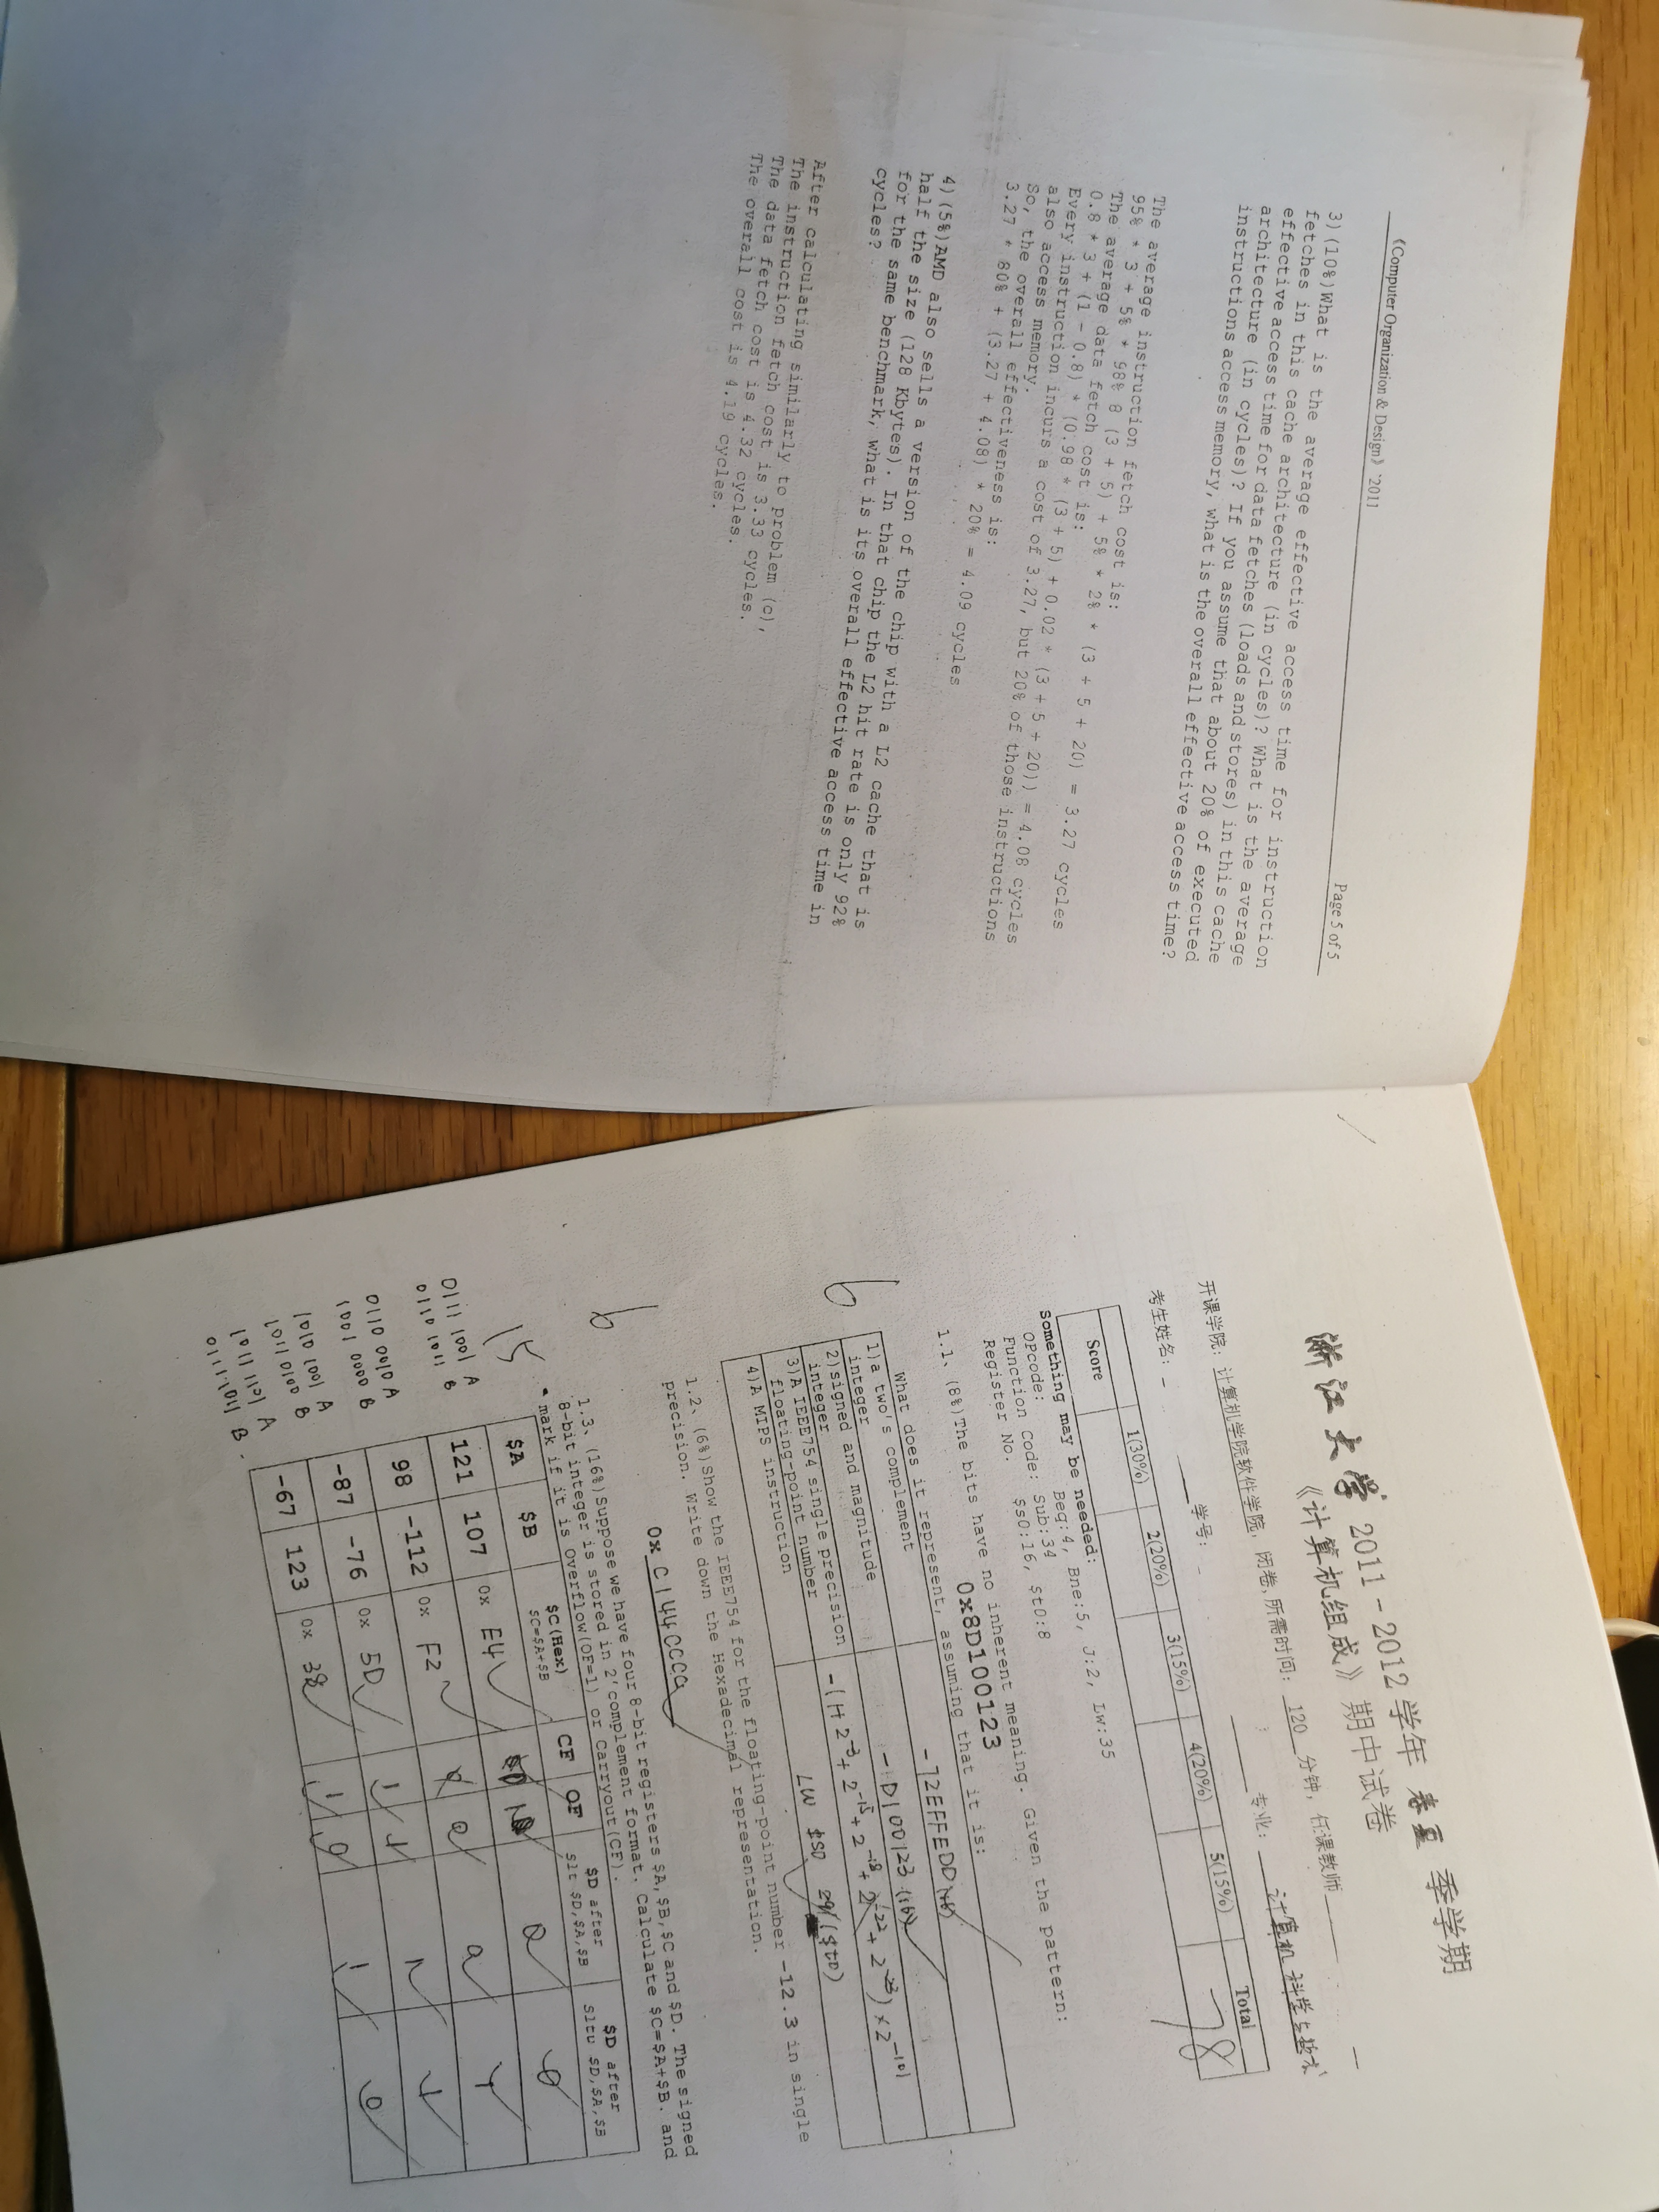 《Computer Organization & Design》 '2011 Page 5 of 5
3) (10%)What is the average effective access time for instruction
fetches in this cache architecture (in cycles)? What is the average
effective access time for data fetches (loads and stores) in this cache
architecture (in cycles)? If you assume that about 20% of executed
instructions access memory, what is the overall effective access time?
The average instruction fetch cost is:
95% * 3 + 5% * 98% 8 (3 + 5) + 5% * 2% * (3 + 5 + 20) = 3.27 cycles
The average data fetch cost is:
0.8 * 3 + (1 - 0.8) * (0.98 * (3 + 5) + 0.02 * (3 + 5 + 20)) = 4.08 cycles
Every instruction incurs a cost of 3.27, but 20% of those instructions
also access memory.
So, the overall effectiveness is:
3.27 * 80% + (3.27 + 4.08) * 20% = 4.09 cycles
4) (5%)AMD also sells a version of the chip with a L2 cache that is
half the size (128 Kbytes). In that chip the L2 hit rate is only 92%
for the same benchmark, what is its overall effective access time in
cycles?
After calculating similarly to problem (c),
The instruction fetch cost is 3.33 cycles.
The data fetch cost is 4.32 cycles.
The overall cost is 4.19 cycles.
浙江大学 2011-2012 学年 春夏 季学期
《计算机组成》期中试卷
开课学院: 计算机学院软件学院, 闭卷,所需时间: 120 分钟, 任课教师
考生姓名: 学号: 专业: 计算机科学与技术
1(30%) 2(20%) 3(15%) 4(20%) 5(15%) Total
Score 78
Something may be needed:
OPcode: Beq:4, Bne:5, J:2, Lw:35
Function Code: Sub:34
Register No. $s0:16, $t0:8
1.1、(8%)The bits have no inherent meaning. Given the pattern:
0x8D100123
What does it represent, assuming that it is:
6
1)a two's complement integer -72EFFEDD
2)signed and magnitude integer -D100123 (16)
3)A IEEE754 single precision floating-point number -(1+2^-3+2^-15+2^-18+2^-22+2^-23)×2^-101
4)A MIPS instruction LW $S0 291($t0)
1.2、(6%)Show the IEEE754 for the floating-point number -12.3 in single
precision. Write down the Hexadecimal representation.
6
0x C144CCCC
1.3、(16%)Suppose we have four 8-bit registers $A,$B,$C and $D. The signed
8-bit integer is stored in 2'complement format. Calculate $C=$A+$B. and
mark if it is Overflow(OF=1) or Carryout(CF).
15
$A $B $C(Hex) $C=$A+$B CF OF $D after slt $D,$A,$B $D after sltu $D,$A,$B
121 107 0x E4 0 1 0 0
98 -112 0x F2 0 0 1
-87 -76 0x 5D 1 1 1 1
-67 123 0x 38 1 0 1 0
0111 1001 A
0110 1011 B
0110 0010 A
1001 0000 B
1010 1001 A
1011 0100 B
1011 1101 A
0111 1011 B